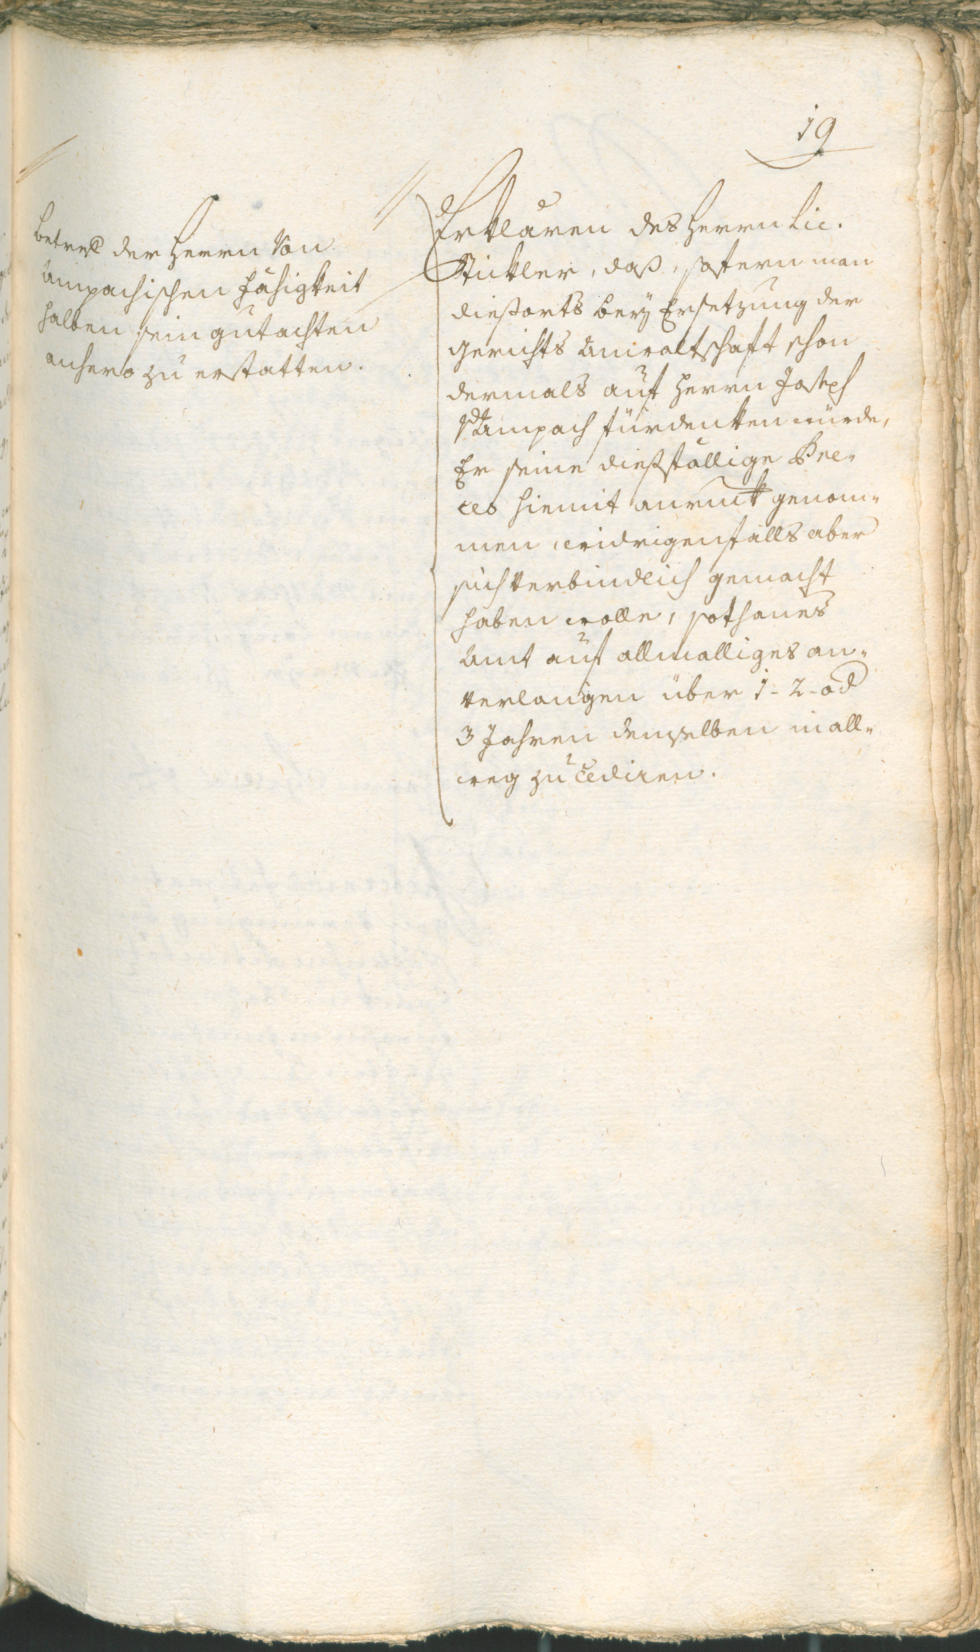 19
Betref der Herrn Von
Ampachischen Fähigkeit
halben sein gutachten
anhero zu erstatten.
Erklären des Herrn Lic.
Stickler, daß, sofern man
dießorts beÿ Ersetzung der
Gerichts Anwaltschaft schon
dermals auf Herrn Joseph
V. Ampach fürdenken würde,
Er seine dießfällige Pre-
ces hiemit zuruck genom-
men, widrigenfalls aber
sich verbindlich gemacht
haben wolle, sothanes
Amt auf allmalliges an-
verlangen über 1- 2- od
3 Jahren demselben in all-
weg zu cediren.